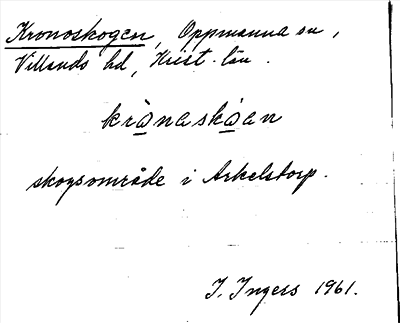 Kronoskogen, Oppmanna sn,
Villands hd, Krist. län.
krònaskòan
skogsområde i Arkelstorp.
I. Ingers 1961.